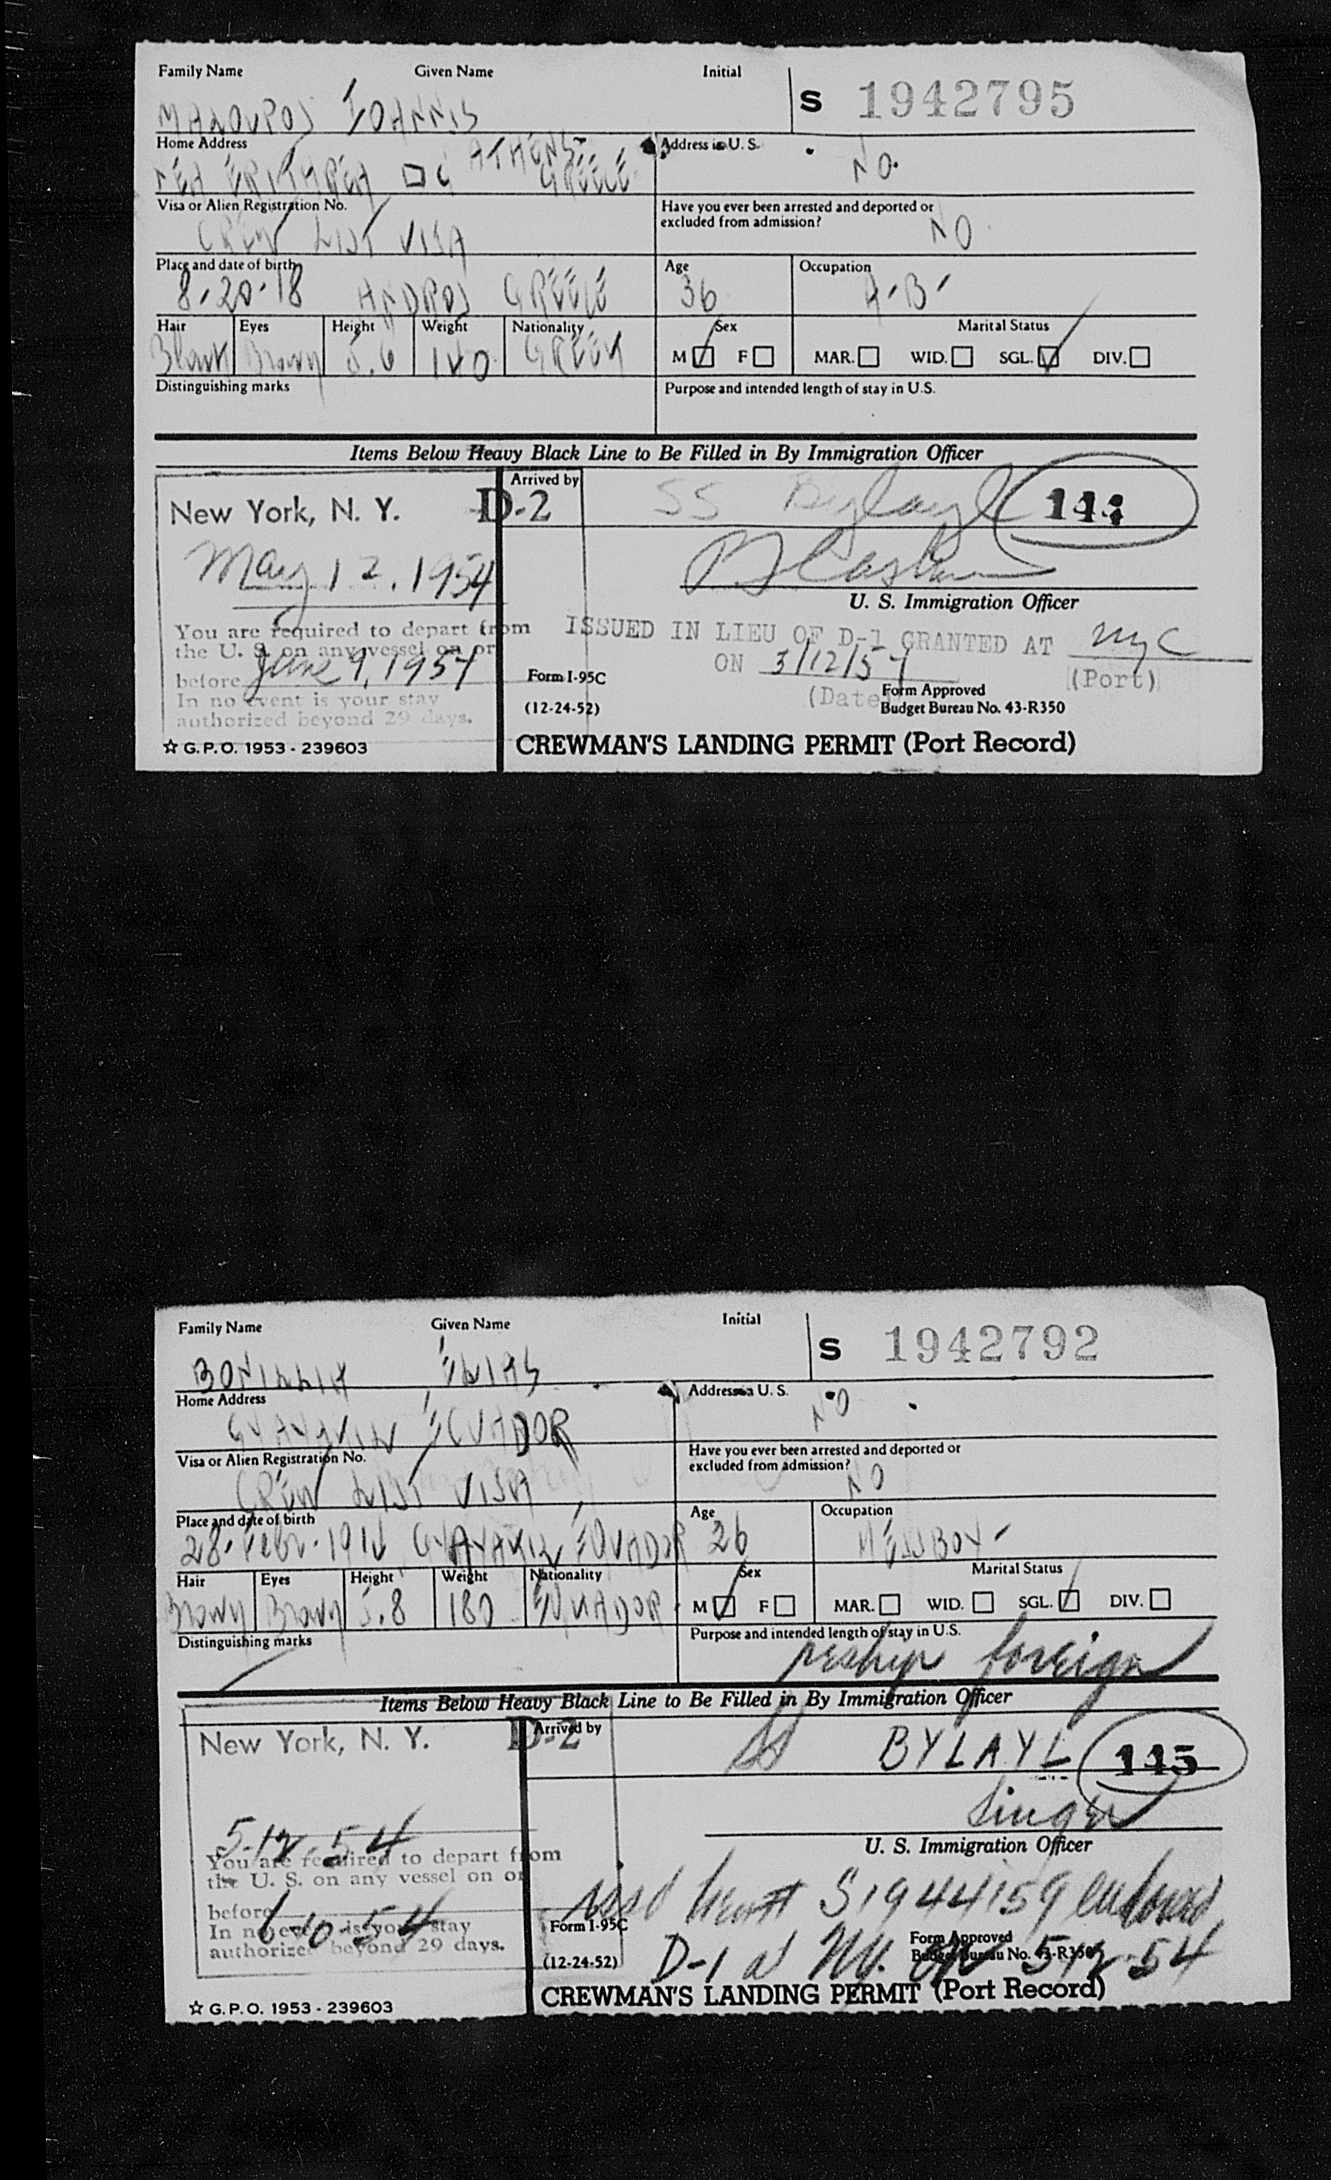 Family Name Given Name Initial
S 1942795
IOANNIS
Home Address Address in U. S.
ATHENS-
NEA ERITHREA GREECE NO.
Visa or Alien Registration No. Have you ever been arrested and deported or
excluded from admission?
CREW LIST VISA NO
Place and date of birth Age Occupation
8-20-18 ANDROS GREECE 36 A-B-
Hair Eyes Height Weight Nationality Sex Marital Status
Black Brown 5.6 140 GREEK M F MAR. WID. SGL. DIV.
Distinguishing marks Purpose and intended length of stay in U.S.
Items Below Heavy Black Line to Be Filled in By Immigration Officer
Arrived by
New York, N. Y. D-2 SS Bylayl 144
May 12, 1954
U. S. Immigration Officer
You are required to depart from
the U. S. on any vessel on or
before June 9, 1954
In no event is your stay
authorized beyond 29 days.
ISSUED IN LIEU OF D-1 GRANTED AT NYC
ON 3/12/54 (Port)
(Date)
Form I-95C Form Approved
(12-24-52) Budget Bureau No. 43-R350
☆ G.P.O. 1953 - 239603 CREWMAN'S LANDING PERMIT (Port Record)
Family Name Given Name Initial
S 1942792
BONILLIA ELIAS
Home Address Address in U. S.
ECUADOR NO
Visa or Alien Registration No. Have you ever been arrested and deported or
excluded from admission?
CREW LIST VISA NO
Place and date of birth Age Occupation
28-Febr. 26 MESSBOY-
Hair Eyes Height Weight Nationality Sex Marital Status
Brown Brown 5.8 180 M F MAR. WID. SGL. DIV.
Distinguishing marks Purpose and intended length of stay in U.S.
reship foreign
Items Below Heavy Black Line to Be Filled in By Immigration Officer
Arrived by
New York, N. Y. D-2 SS BYLAYL 145
Singer
U. S. Immigration Officer
5-12-54
You are required to depart from
the U. S. on any vessel on or
before 6-10-54
In no event is your stay
authorized beyond 29 days.
S1944159
D-1 at NY. on 5-12-54
Form I-95C Form Approved
(12-24-52) Budget Bureau No. 43-R350
☆ G.P.O. 1953 - 239603 CREWMAN'S LANDING PERMIT (Port Record)